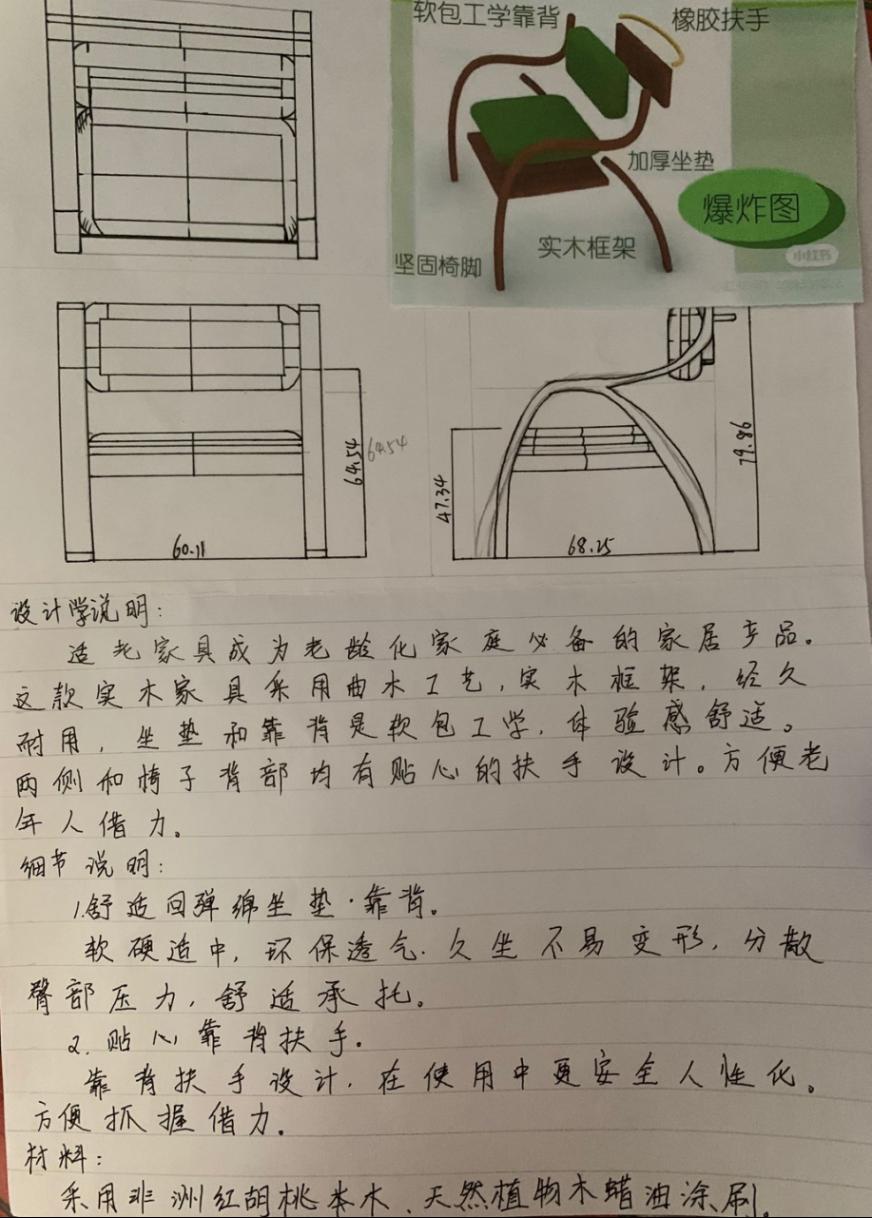 软包工学靠背
橡胶扶手
加厚坐垫
爆炸图
实木框架
坚固椅脚
小红书
64.54
64.54
60.11
47.34
79.86
68.25
设计学说明:
适老家具成为老龄化家庭必备的家居产品。
这款实木家具采用曲木工艺,实木框架,经久
耐用,坐垫和靠背是软包工学,体验感舒适。
两侧和椅子背部均有贴心的扶手设计。方便老
年人借力。
细节说明:
1.舒适回弹绵坐垫·靠背。
软硬适中,环保透气.久坐不易变形,分散
臀部压力,舒适承托。
2.贴心靠背扶手.
靠背扶手设计,在使用中更安全人性化。
方便抓握借力.
材料:
采用非洲红胡桃本木、天然植物木蜡油涂刷.